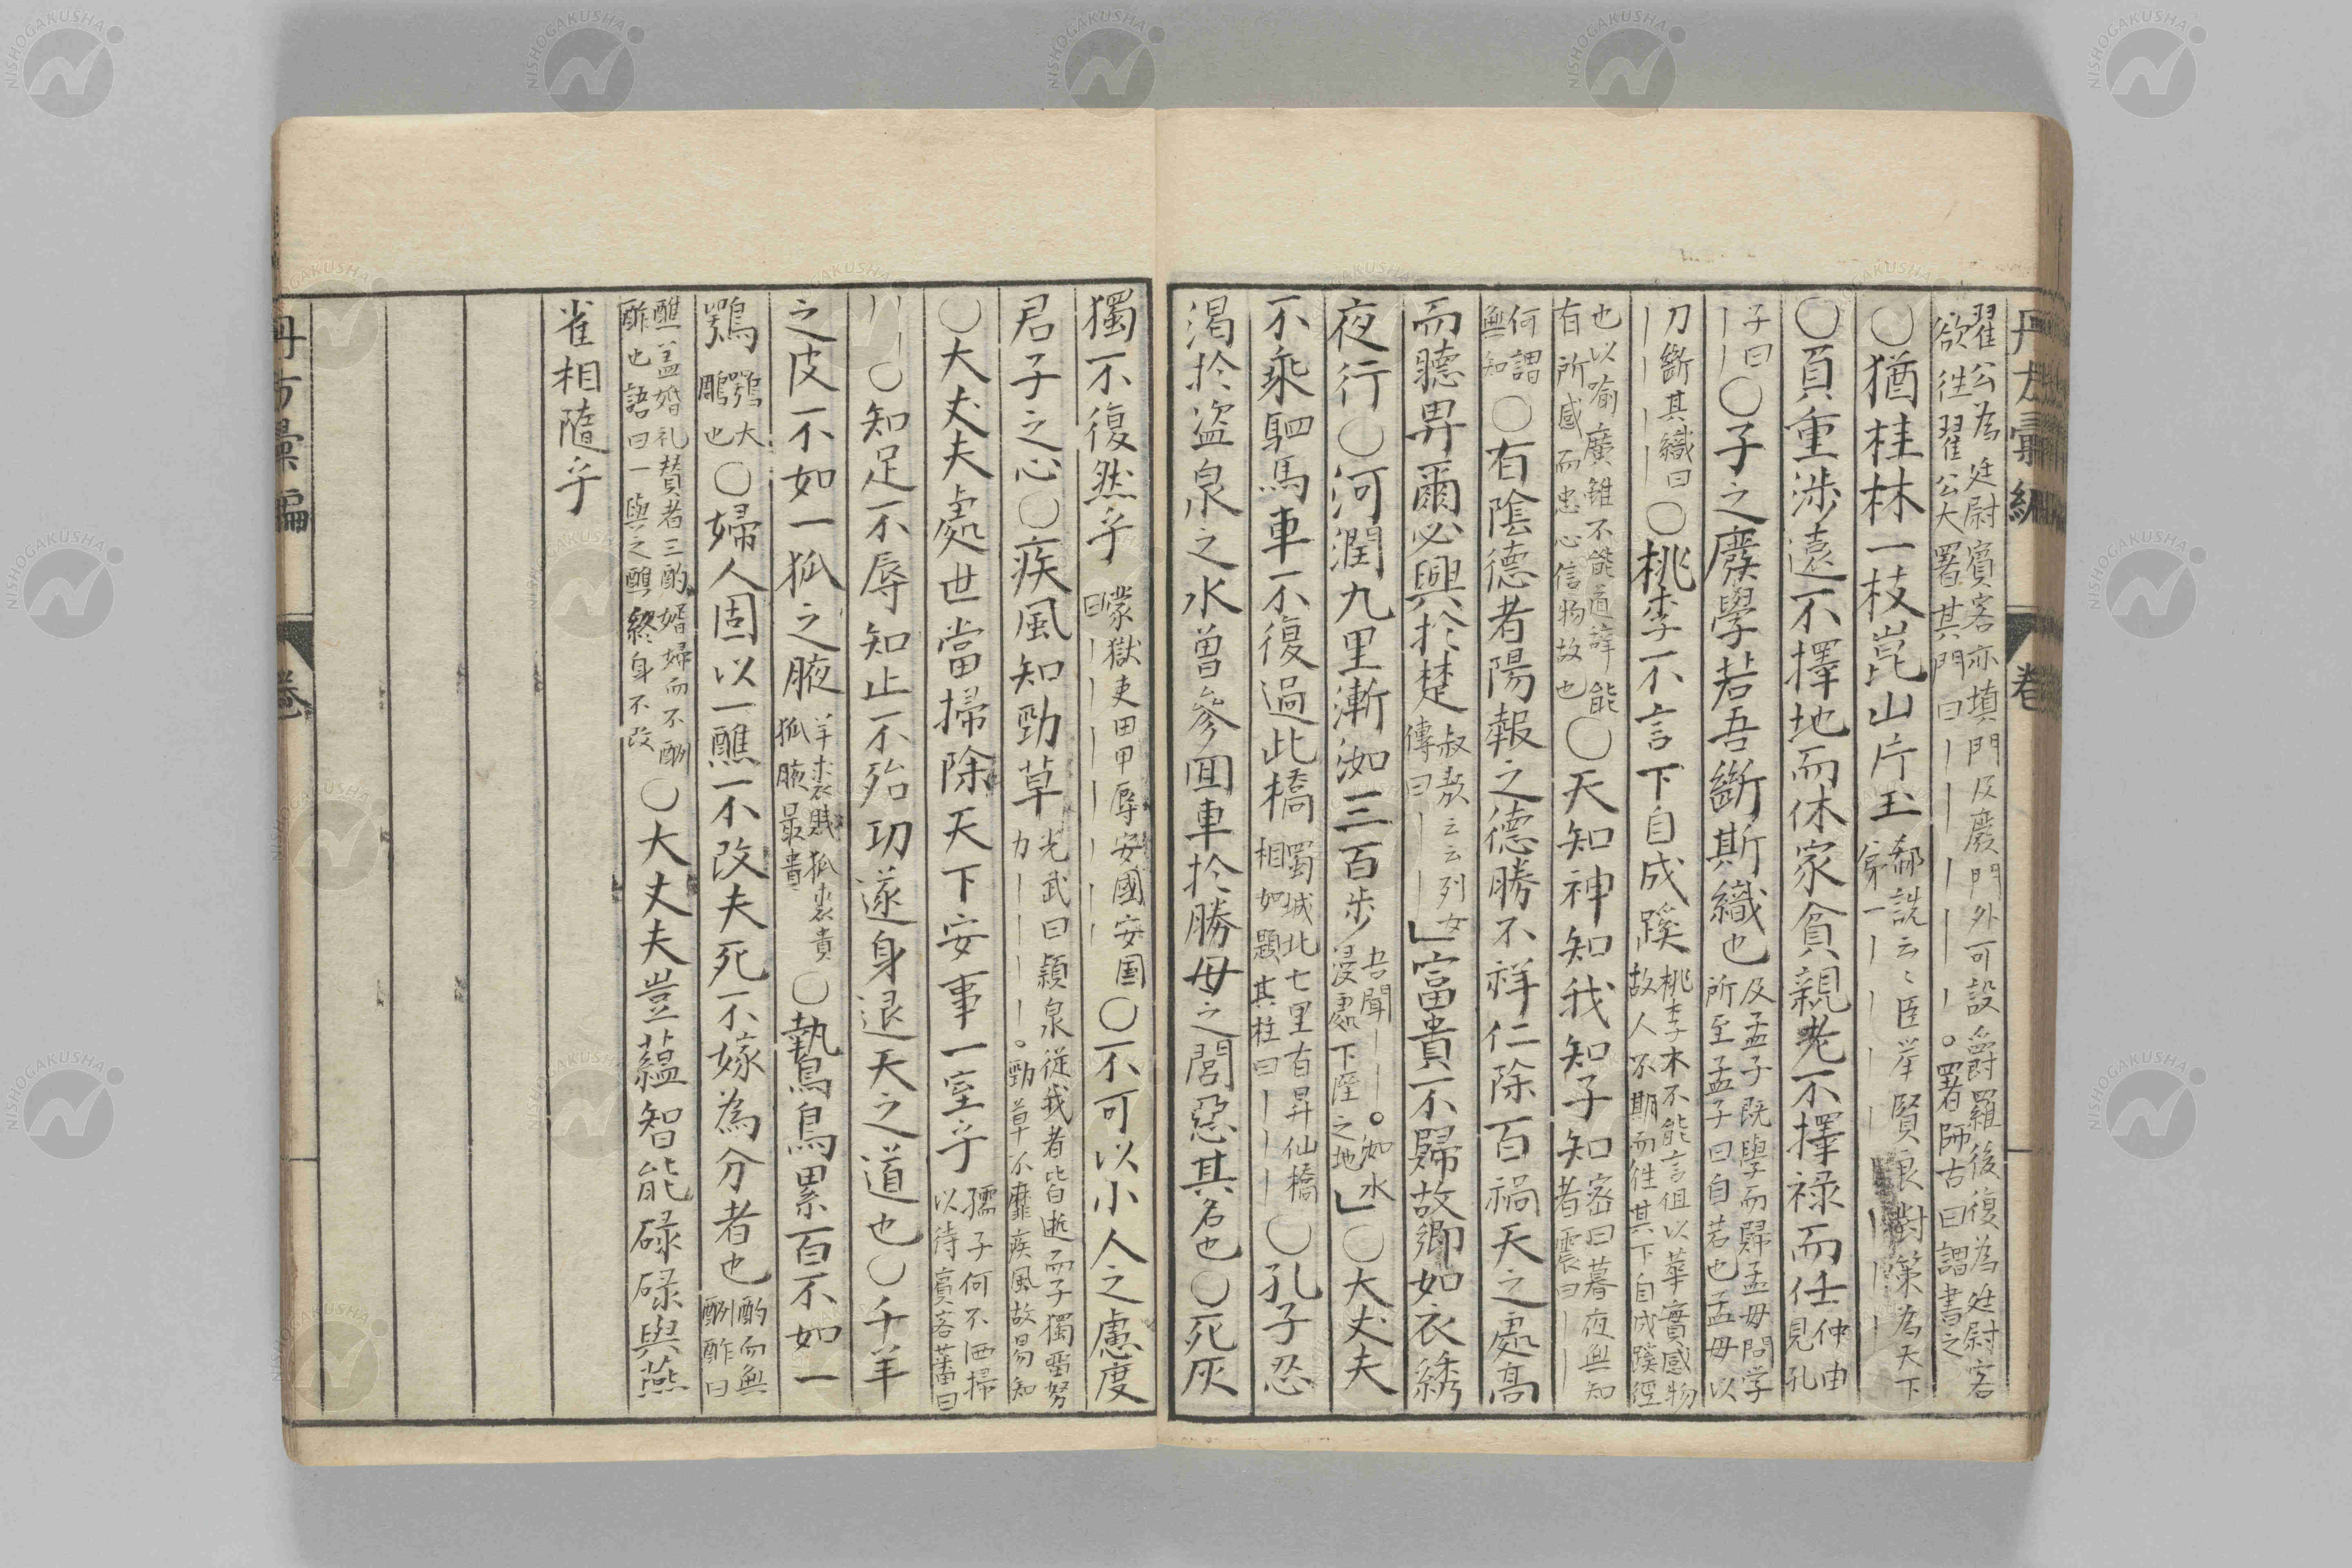 丹方彙編
卷
翟公為廷尉賓客亦填門及廢門外可設爵羅後復為廷尉客
欲往翟公大署其門曰｜｜｜｜｜。署師古曰謂書之
〇猶桂林一枝崑山片玉
郄詵云〻臣挙賢良對策為天下
第一｜｜｜｜｜｜｜
〇負重渉遠不擇地而休家貧親老不擇禄而仕
仲由
見孔
子曰
｜｜
〇子之廢學若吾斷斯織也
及孟子既學而歸孟母問学
所至孟子曰自若也孟母以
刀斷其織曰
｜｜｜｜
〇桃李不言下自成蹊
桃李木不能言但以華實感物
故人不期而往其下自成蹊徑
也以喻廣雖不能道辞能
有所感而忠心信物故也
〇天知神知我知子知
密曰暮夜無知
者震曰｜｜
何謂
無知
〇有陰德者陽報之德勝不祥仁除百禍天之處高
而聽卑爾必興於楚
叔敖云云列女
傳曰｜｜｜
」富貴不歸故郷如衣綉
夜行〇河潤九里漸洳三百步
吾聞｜｜。洳水
浸處下陘之地
」〇大丈夫
不乘駟馬車不復過此橋
蜀城北七里有昇仙橋
相如題其柱曰｜｜｜｜
〇孔子忍
渴於盗泉之水曽参回車於勝母之閭惡其名也〇死灰
獨不復然乎
蒙獄吏田甲辱安國安国
曰｜｜｜｜｜｜
〇不可以小人之慮度
君子之心〇疾風知勁草
光武曰潁泉從我者皆逝而子獨留努
力｜｜｜｜。勁草不靡疾風故易知
〇大丈夫處世當掃除天下安事一室乎
孺子何不洒掃
以待賓客蕃曰
｜｜〇知足不辱知止不殆功遂身退天之道也〇千羊
之皮不如一狐之腋
羊裘賤狐裘貴
狐腋最貴
〇鷙鳥累百不如一
鶚
鶚大
鵰也
〇婦人固以一醮不改夫死不嫁為分者也
酌而無
酬酢曰
醮盖婚礼賛者三酌婿婦而不酬
酢也語曰一與之醮終身不改
〇大丈夫豈蘊智能碌碌與燕
雀相隨乎
丹方彙編
卷